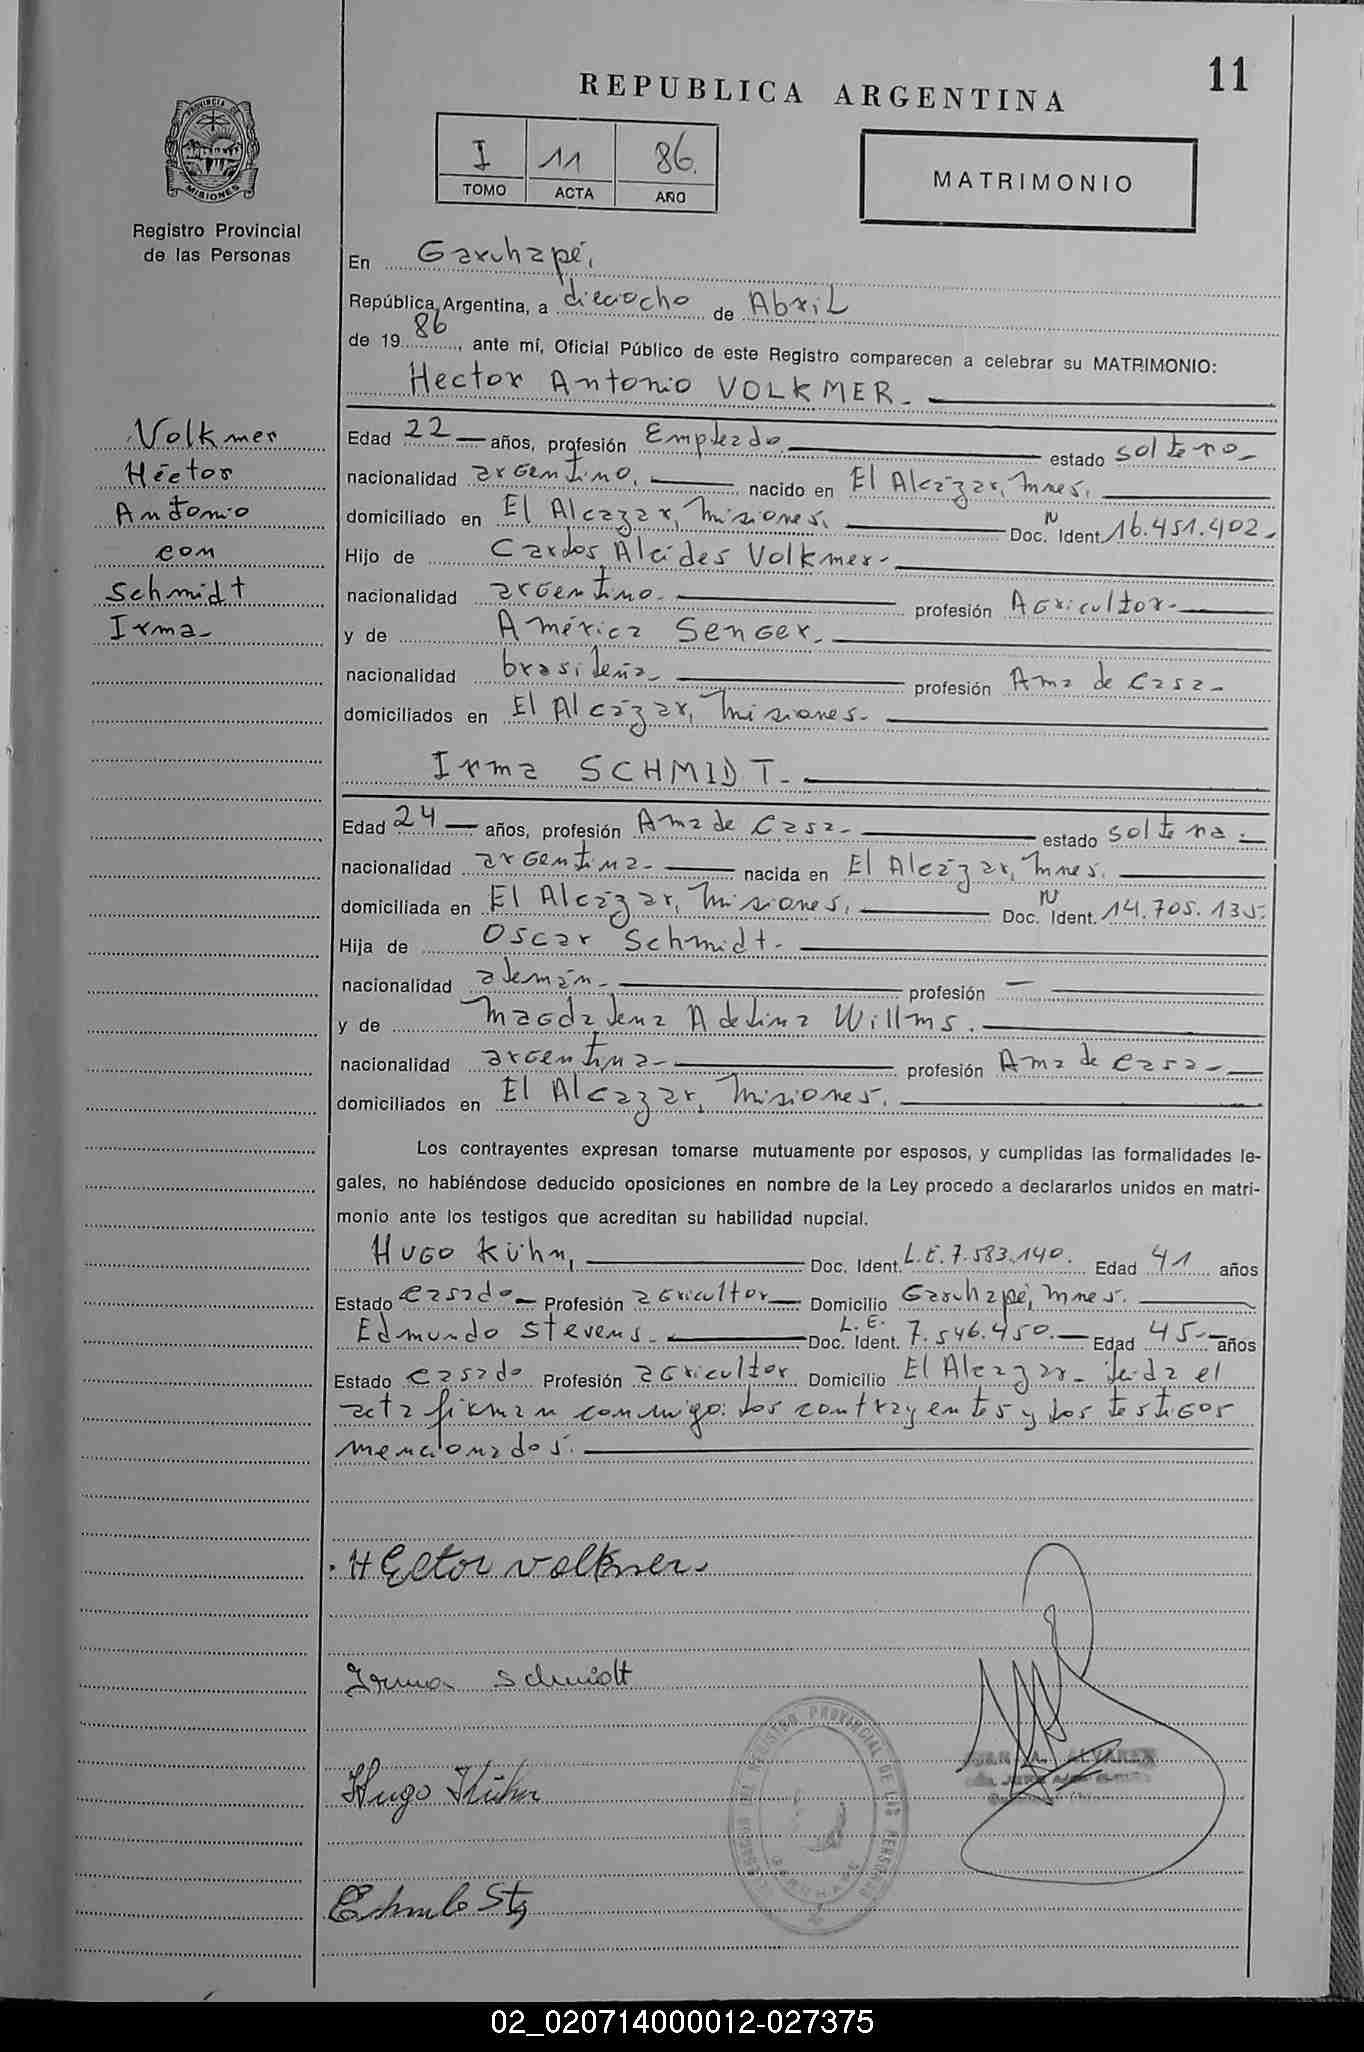 11
REPUBLICA ARGENTINA
I 11 86.
TOMO ACTA AÑO
MATRIMONIO
PROVINCIA DE
MISIONES
Registro Provincial
de las Personas
En Garuhapé,
República Argentina, a dieciocho de Abril
de 19 86, ante mí, Oficial Público de este Registro comparecen a celebrar su MATRIMONIO:
Hector Antonio VOLKMER.
Volkmer
Héctor
Antonio
con
Schmidt
Irma-
Edad 22 - años, profesión Empleado. estado soltero-
nacionalidad argentino. nacido en El Alcázar, Mnes.
domiciliado en El Alcazar, Misiones. Doc. N Ident. 16.451.402-
Hijo de Carlos Alcides Volkmer-
nacionalidad argentino- profesión Agricultor-
y de América Senger.
nacionalidad brasileña- profesión Ama de Casa-
domiciliados en El Alcázar, Misiones-
Irma SCHMIDT-
Edad 24 - años, profesión Ama de Casa- estado soltera-
nacionalidad argentina- nacida en El Alcázar, Mnes.
domiciliada en El Alcázar, Misiones. Doc. N Ident. 14.705.135.
Hija de Oscar Schmidt-
nacionalidad alemán- profesión -
y de Magdalena Adelina Willms.
nacionalidad argentina- profesión Ama de casa-
domiciliados en El Alcazar, Misiones.
Los contrayentes expresan tomarse mutuamente por esposos, y cumplidas las formalidades le-
gales, no habiéndose deducido oposiciones en nombre de la Ley procedo a declararlos unidos en matri-
monio ante los testigos que acreditan su habilidad nupcial.
Hugo Kühn, Doc. Ident. L.E. 7.583.140. Edad 41 años
Estado casado- Profesión agricultor- Domicilio Garuhapé, Mnes.
Edmundo Stevens- Doc. Ident. L.E. 7.546.450.- Edad 45- años
Estado casado Profesión agricultor Domicilio El Alcazar- Leida el
acta firman conmigo: los contrayentes y los testigos
mencionados.
Hector Volkmer.
Irma Schmidt
REGISTRO PROVINCIAL DE LAS PERSONAS
GARUHAPE
JUAN A. ALVAREZ
Hugo Kühn
02_020714000012-027375